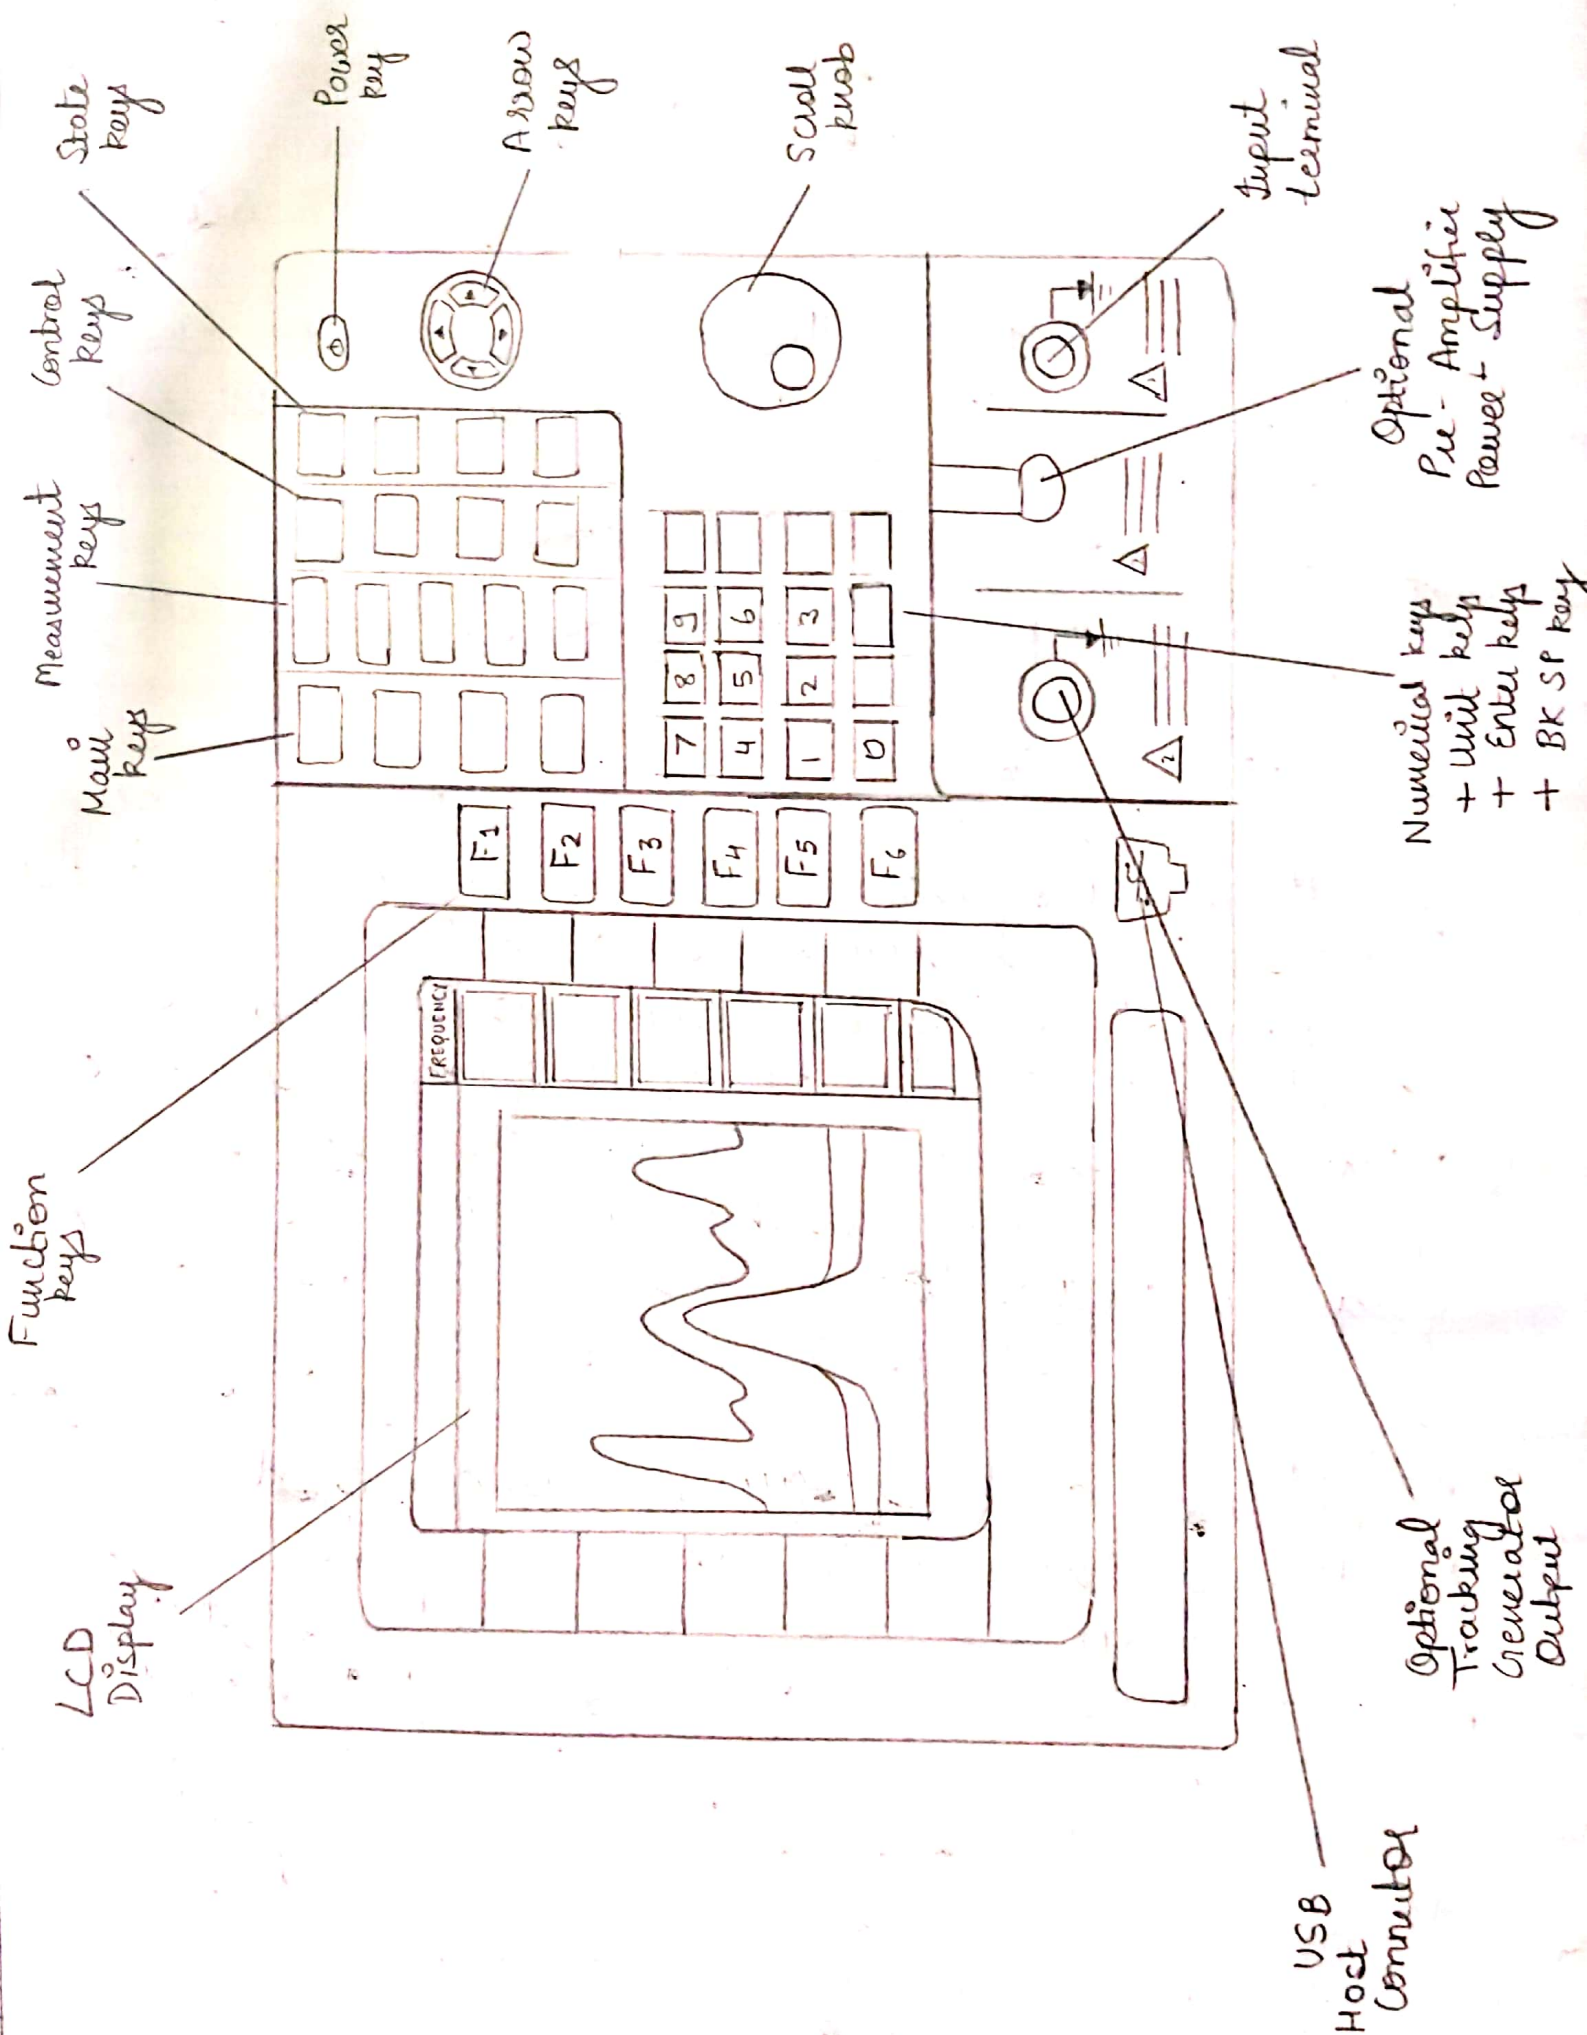 LCD
Display
Function
keys
Main
keys
Measurement
keys
Control
keys
State
keys
Power
key
Arrow
keys
Scroll
knob
Input
terminal
Optional
Pre-Amplifier
Power Supply
Numerical keys
+ Unit keys
+ Enter keys
+ BK SP key
Optional
Tracking
Generator
Output
USB
Host
Connector
FREQUENCY
F1
F2
F3
F4
F5
F6
7 8 9
4 5 6
1 2 3
0